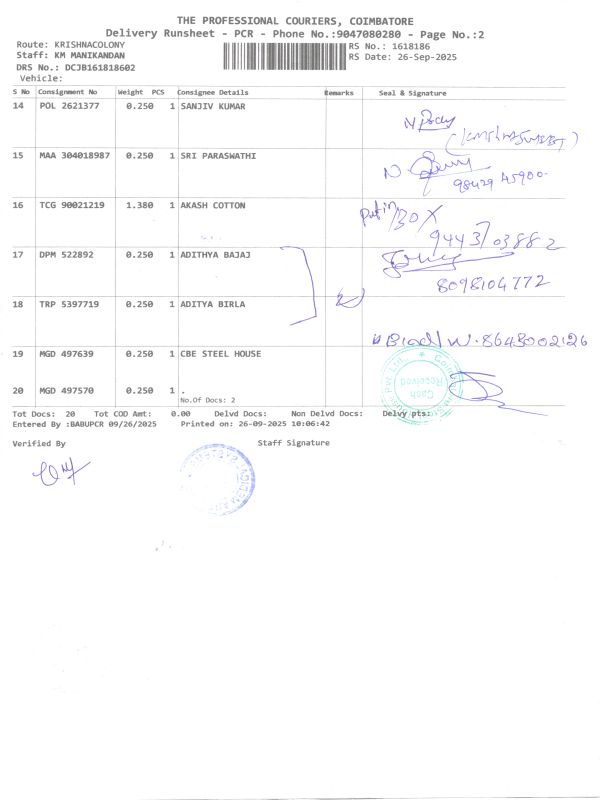 THE PROFESSIONAL COURIERS, COIMBATORE
Delivery Runsheet - PCR - Phone No.:9047080280 - Page No.:2
Route: KRISHNACOLONY
RS No.: 1618186
Staff: KM MANIKANDAN
RS Date: 26-Sep-2025
DRS No.: DCJB161818602
Vehicle:
S No Consignment No Weight PCS Consignee Details Remarks Seal & Signature
14 POL 2621377 0.250 1 SANJIV KUMAR
15 MAA 304018987 0.250 1 SRI PARASWATHI
N.
98429 45900
16 TCG 90021219 1.380 1 AKASH COTTON
Put in BOX
94437 03882
17 DPM 522892 0.250 1 ADITHYA BAJAJ
8098104772
18 TRP 5397719 0.250 1 ADITYA BIRLA
8643002126
19 MGD 497639 0.250 1 CBE STEEL HOUSE
Cash
Received
20 MGD 497570 0.250 1 .
No.Of Docs: 2
Tot Docs: 20 Tot COD Amt: 0.00 Delvd Docs: Non Delvd Docs: Delvy pts:
Entered By :BABUPCR 09/26/2025 Printed on: 26-09-2025 10:06:42
Verified By Staff Signature